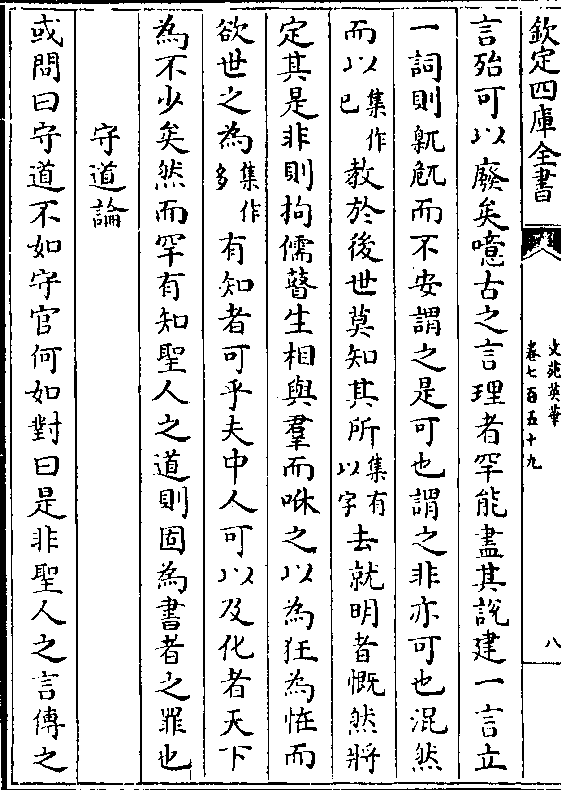 欽定四庫全書
文苑英華
卷七百五十九
八
言殆可以廢矣噫古之言理者罕能盡其說建一言立
一詞則臲卼而不安謂之是可也謂之非亦可也混然
而以集作已教於後世莫知其所集有以字去就明者慨然將
定其是非則拘儒瞽生相與羣而咻之以為狂為怪而
欲世之為集作多有知者可乎夫中人可以及化者天下
為不少矣然而罕有知聖人之道則固為書者之罪也
守道論
或問曰守道不如守官何如對曰是非聖人之言傳之